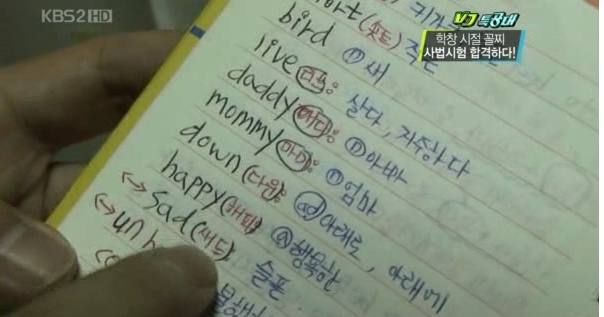 KBS2HD
VJ특공대
학창 시절 꼴찌
사법시험 합격하다!
bird ⓝ새
live : 살다, 거주하다
daddy(대디): ⓝ아빠
mommy(마미): ⓝ엄마
down(다운): ad아래로, 아래에
happy(해피) ⓐ행복한
↔ sad(새드) 슬픈
↔ unh